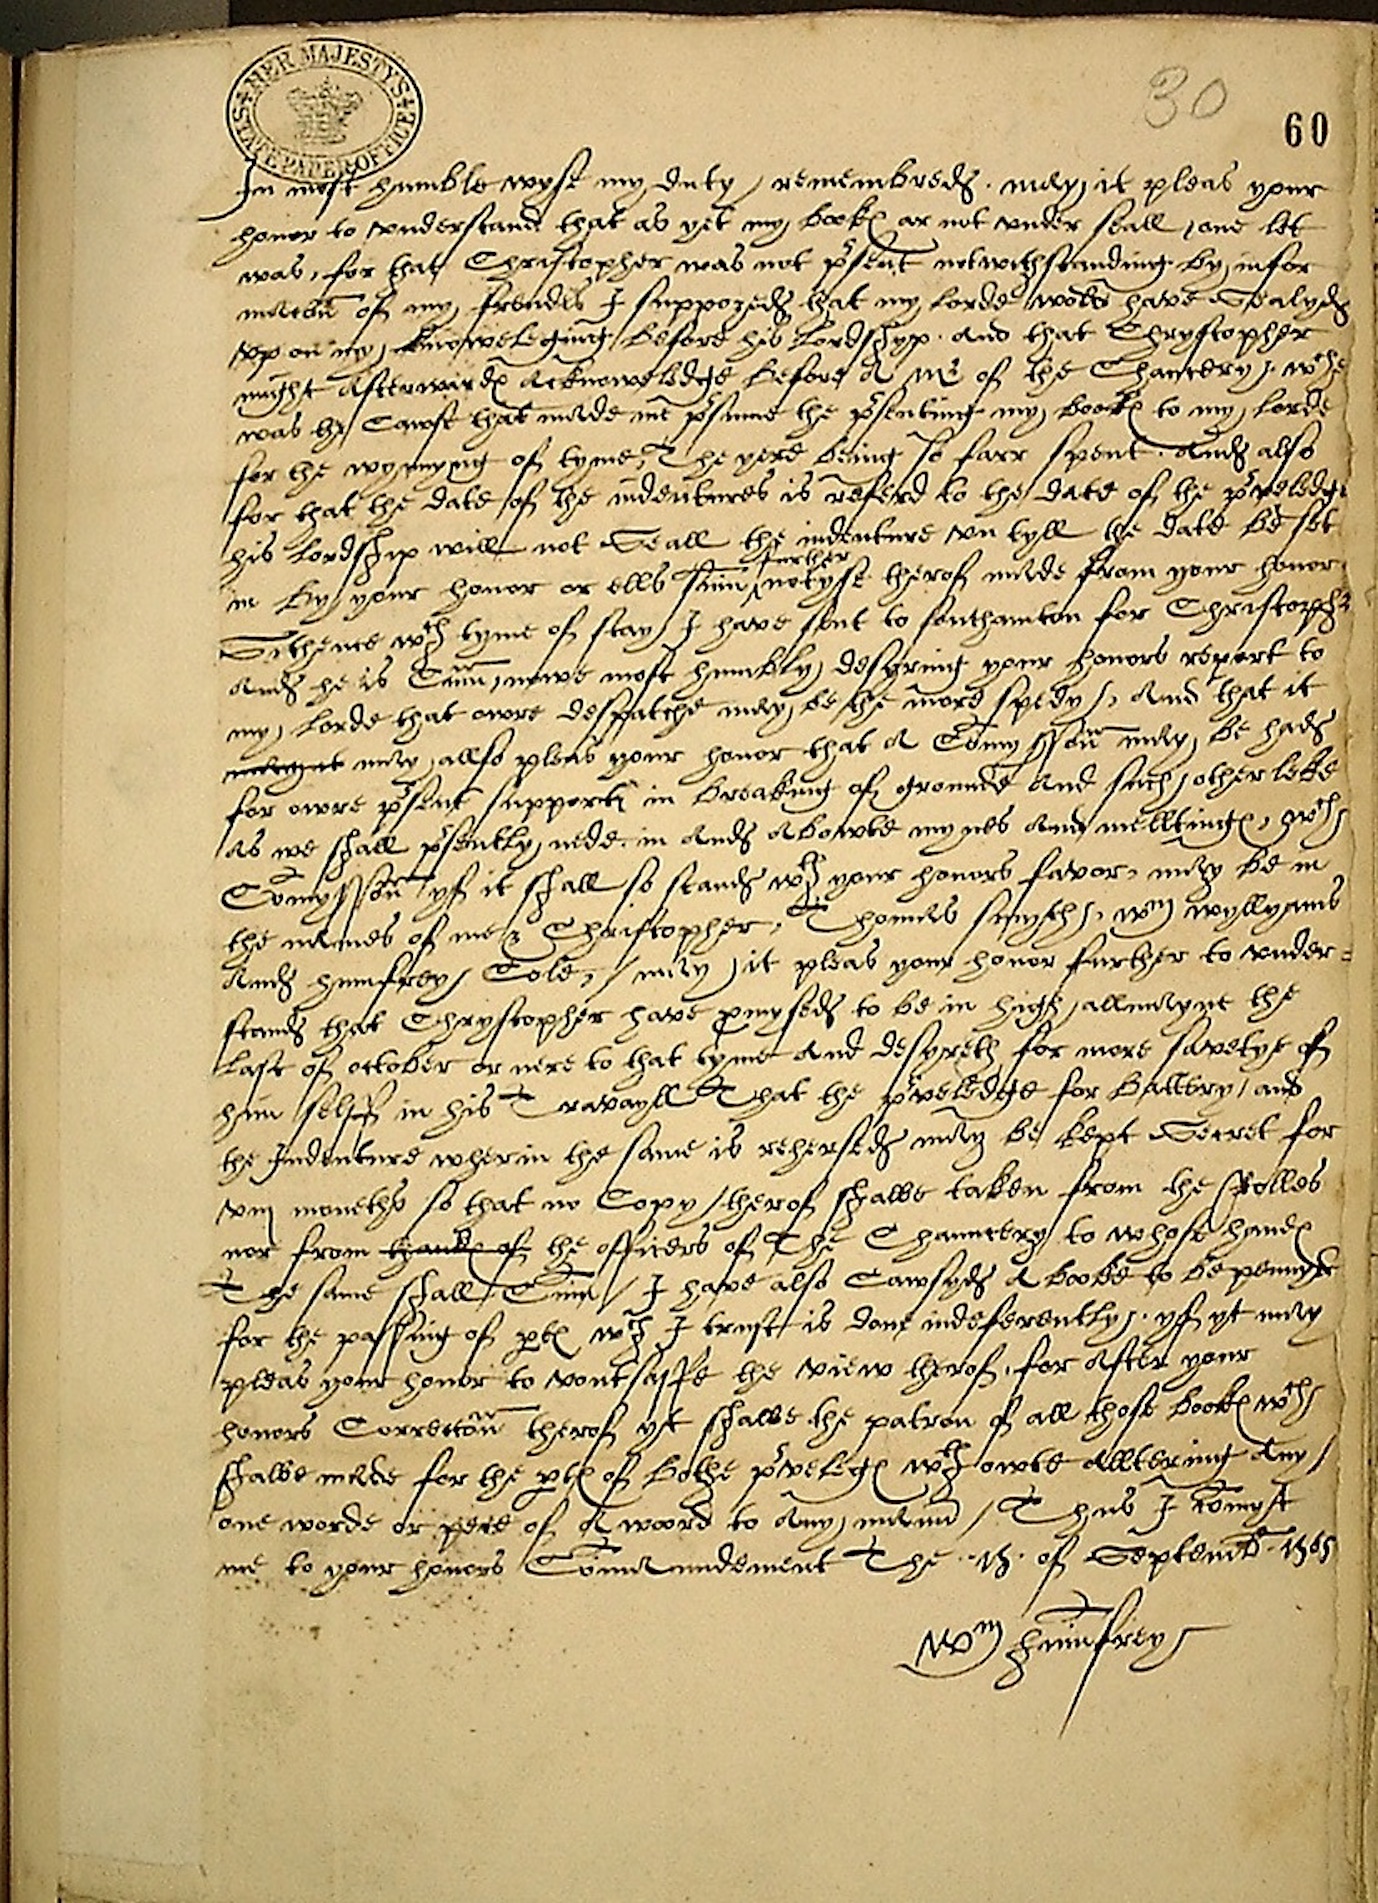 HER MAJESTY'S STATE PAPER OFFICE
30
60
In most humble wyse my duty remembred. may it pleas your
honor to vnderstand that as yet my bookes ar not vnder seall, one let
was, for that Christopher was not p'sent notwithstanding by infor
macōn of my frendes I suppozed that my Lorde wold have Sealyd
vpon my knoweleging before his Lordshyp. And that Chrystopher
might afterwardes acknoweledge before A Mr of the Chancery. wche
was ye Cawse that made me p'sume the p'senting my bookes to my Lorde
for the wynnyng of tyme, The yere being so farr spent. And also
for that the date of the indentures is referd to the date of the p'veledge
his Lordship will not Seall the indenture vntyll the date be set
in by your honor or ells sum further notyse therof made from your honor
Sithence wch tyme of stay I have sent to Southamton for Christopher
And he is Cum, nowe most humbly desyring your honors report to
my Lorde that owre despatche may be the more spedy. And that it
may it may allso pleas your honor that A Comyssoun may be had
for owre p'sent supportes in breaking of grounde And such other leke
As we shall p'sently nede in And Abowte mynes And melltinges, wch
Comyssoun yf it shall so stand wth your honors favor, may be in
the names of me & Christopher, Thomas Smyth, Wm Wyllyams
And Humfrey Cole, / may it pleas your honor further to vnder=
stand that Chrystopher have p'mysed to be in high allmayne the
Last of october or nere to that tyme And desyreth for more savetye of
him selff in his Travayll That the p'veledge for Battery and
the Indenture wherin the same is rehersed may be kept Secret for
vııj moneths so that no Copy therof shalbe taken from the Rolles
nor from handes of the officers of The Chauncery to whose handes
The same shall Cum / I have also Cawsyd A booke to be pennyd
for the passing of ptes wch I trust is done indeferently. yf yt may
pleas your honor to voutsaffe the view therof, for After your
honors Correctōn therof yt shalbe the patron of all those bookes wch
shalbe made for the ptes of bothe p'veleges wthowte Alltering Any
one worde or pece of A woord to Any mann / Thus I comyt
me to your honors Commandement The of Septemb. 1565
Wm Humfrey